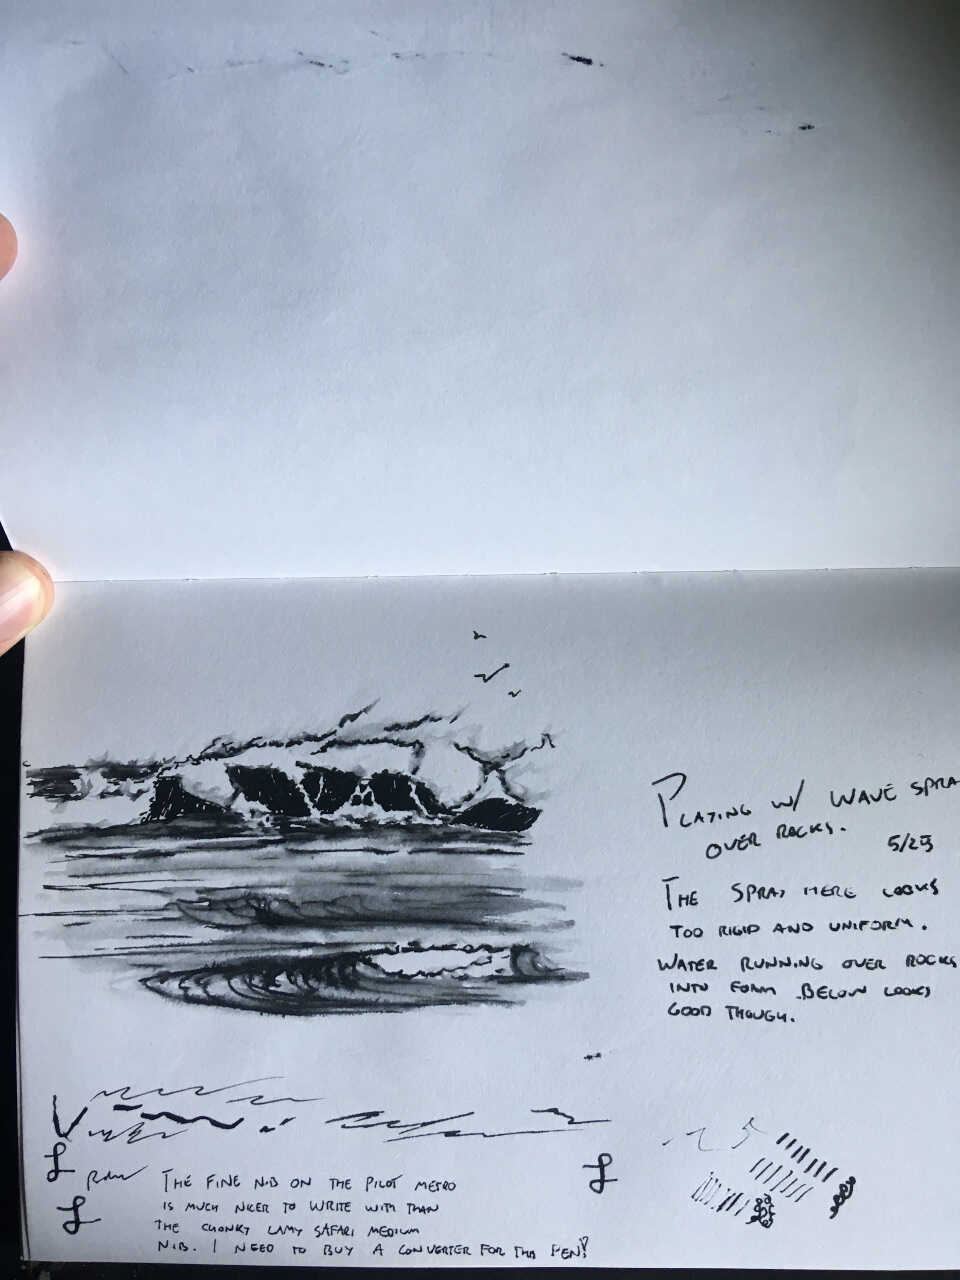 PLAYING W/ WAVE SPRA
OVER ROCKS.
5/29
THE SPRAY HERE LOOKS
TOO RIGID AND UNIFORM.
WATER RUNNING OVER ROCKS
INTO FOAM BELOW LOOKS
GOOD THOUGH.
THE FINE NIB ON THE PILOT METRO
IS MUCH NICER TO WRITE WITH THAN
THE CHONKY LAMY SAFARI MEDIUM
NIB. I NEED TO BUY A CONVERTER FOR THIS PEN!